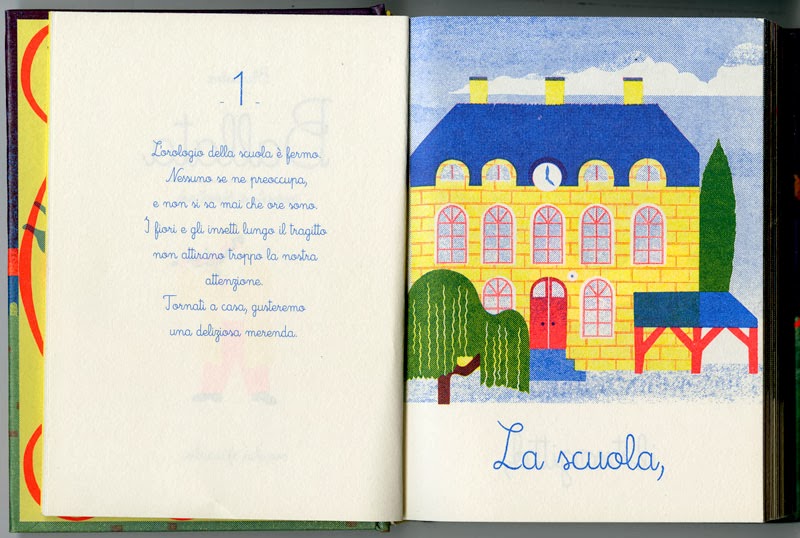 - 1 -
L'orologio della scuola è fermo.
Nessuno se ne preoccupa,
e non si sa mai che ore sono.
I fiori e gli insetti lungo il tragitto
non attirano troppo la nostra
attenzione.
Tornati a casa, gusteremo
una deliziosa merenda.
La scuola,